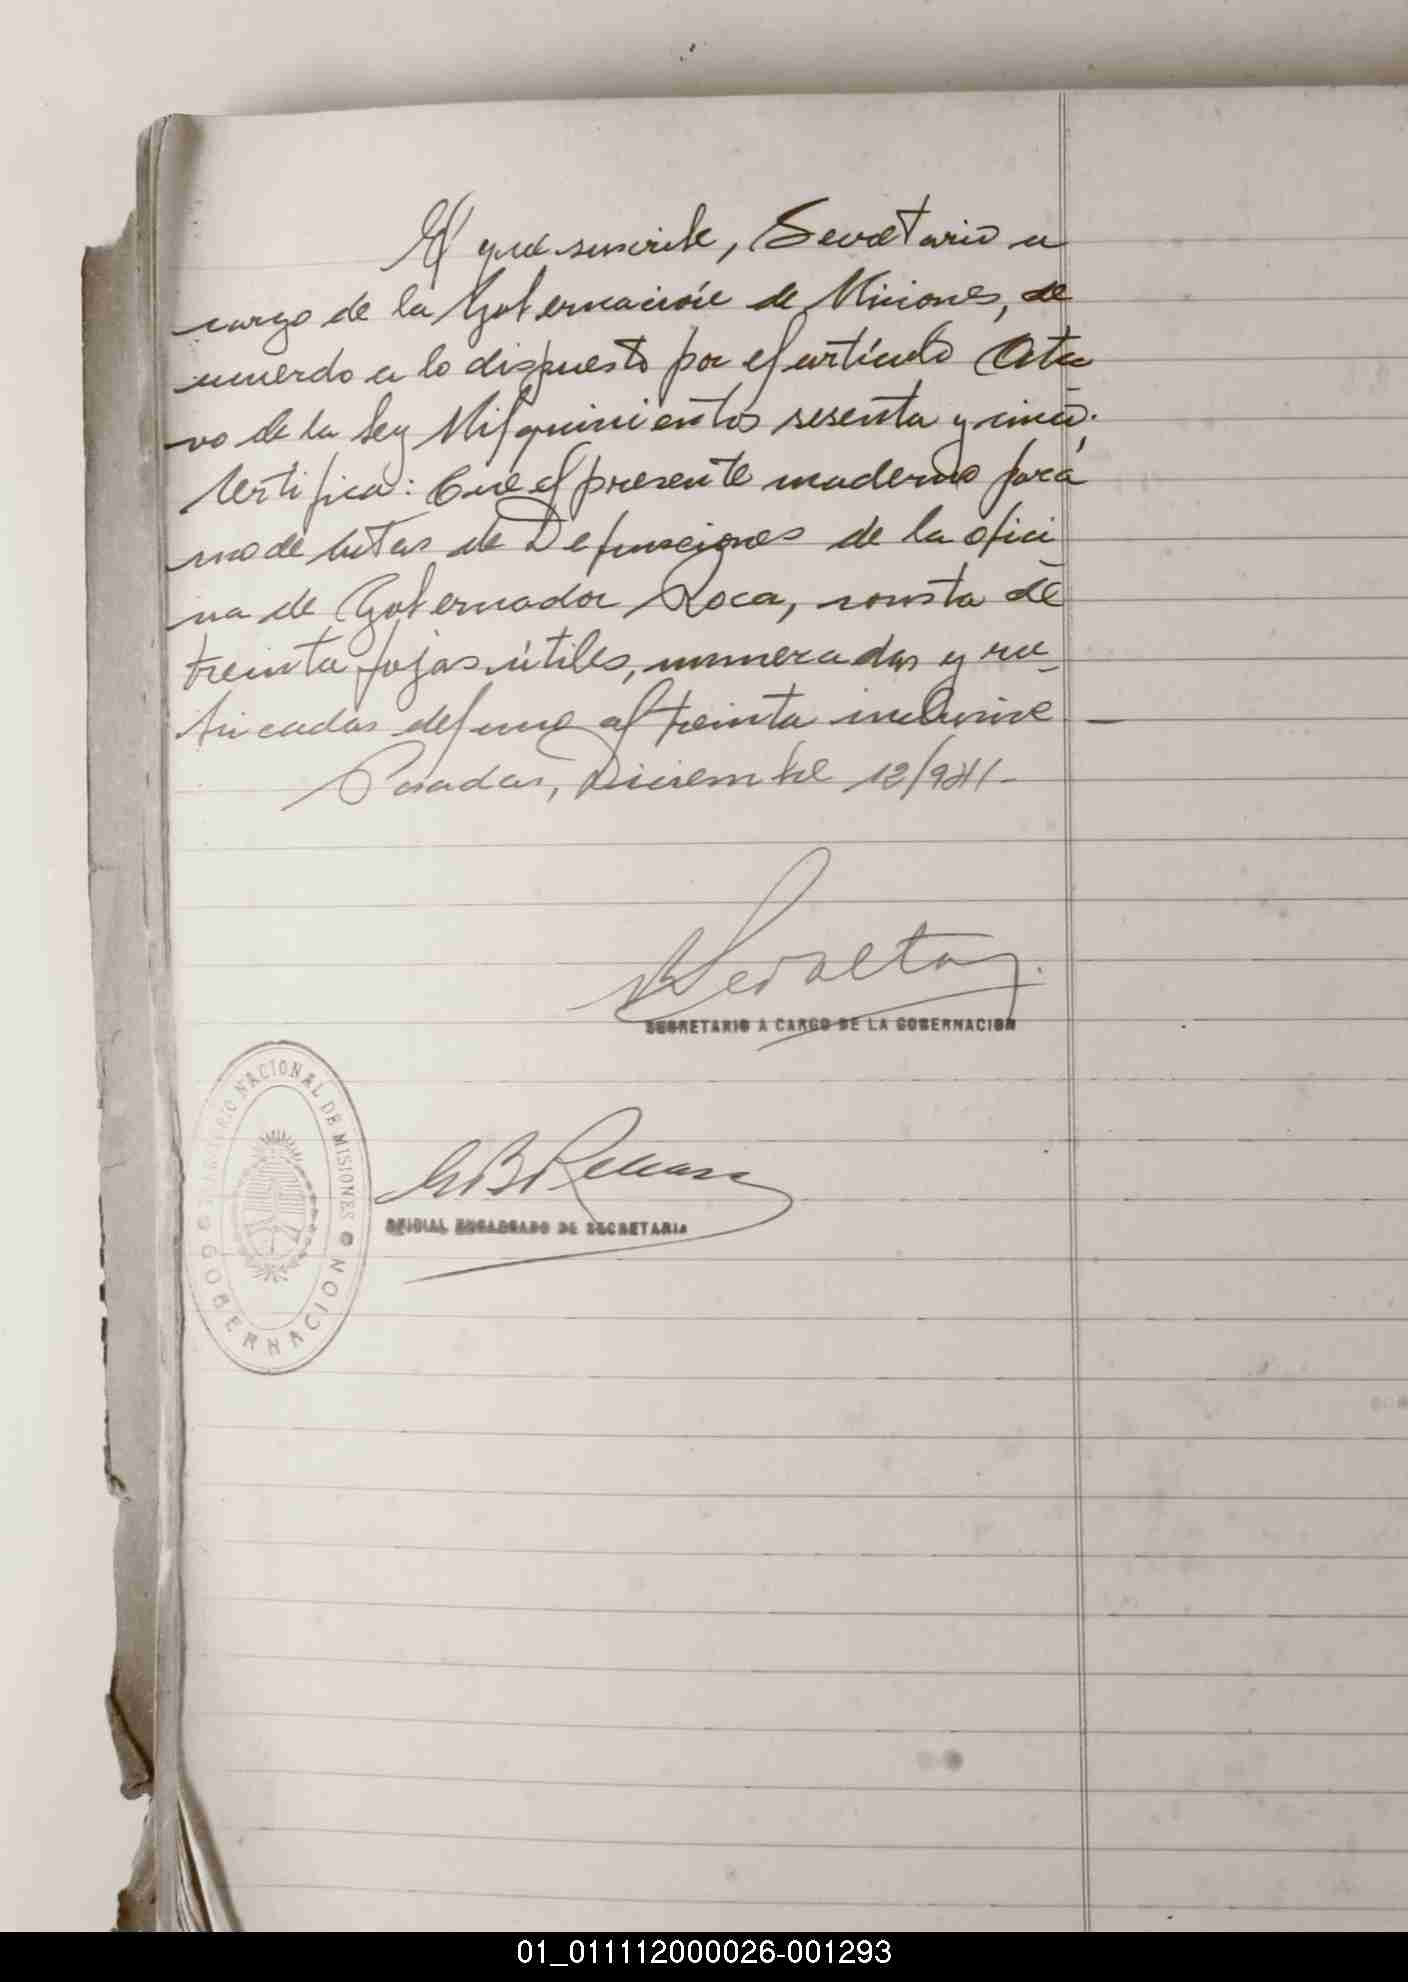 El que suscribe, Secretario a
cargo de la Gobernación de Misiones, de
acuerdo a lo dispuesto por el artículo Octa
vo de la Ley Mil quinientos sesenta y cinco,
Certifica: Que el presente cuaderno para
uno de Actas de Defunciones de la ofici
na de Gobernador Roca, consta de
treinta fojas útiles, numeradas y ru_
bricadas del uno al treinta inclusive —
Posadas, Diciembre 12/941-
SECRETARIO A CARGO DE LA GOBERNACION
TERRITORIO NACIONAL DE MISIONES
GOBERNACION
OFICIAL ENCARGADO DE SECRETARIA
01_011112000026-001293